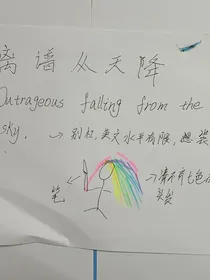 离谱从天降
Outrageous falling from the
sky. → 别杠,英文水平有限,想装
笔
→ 请不齐七色的
头发